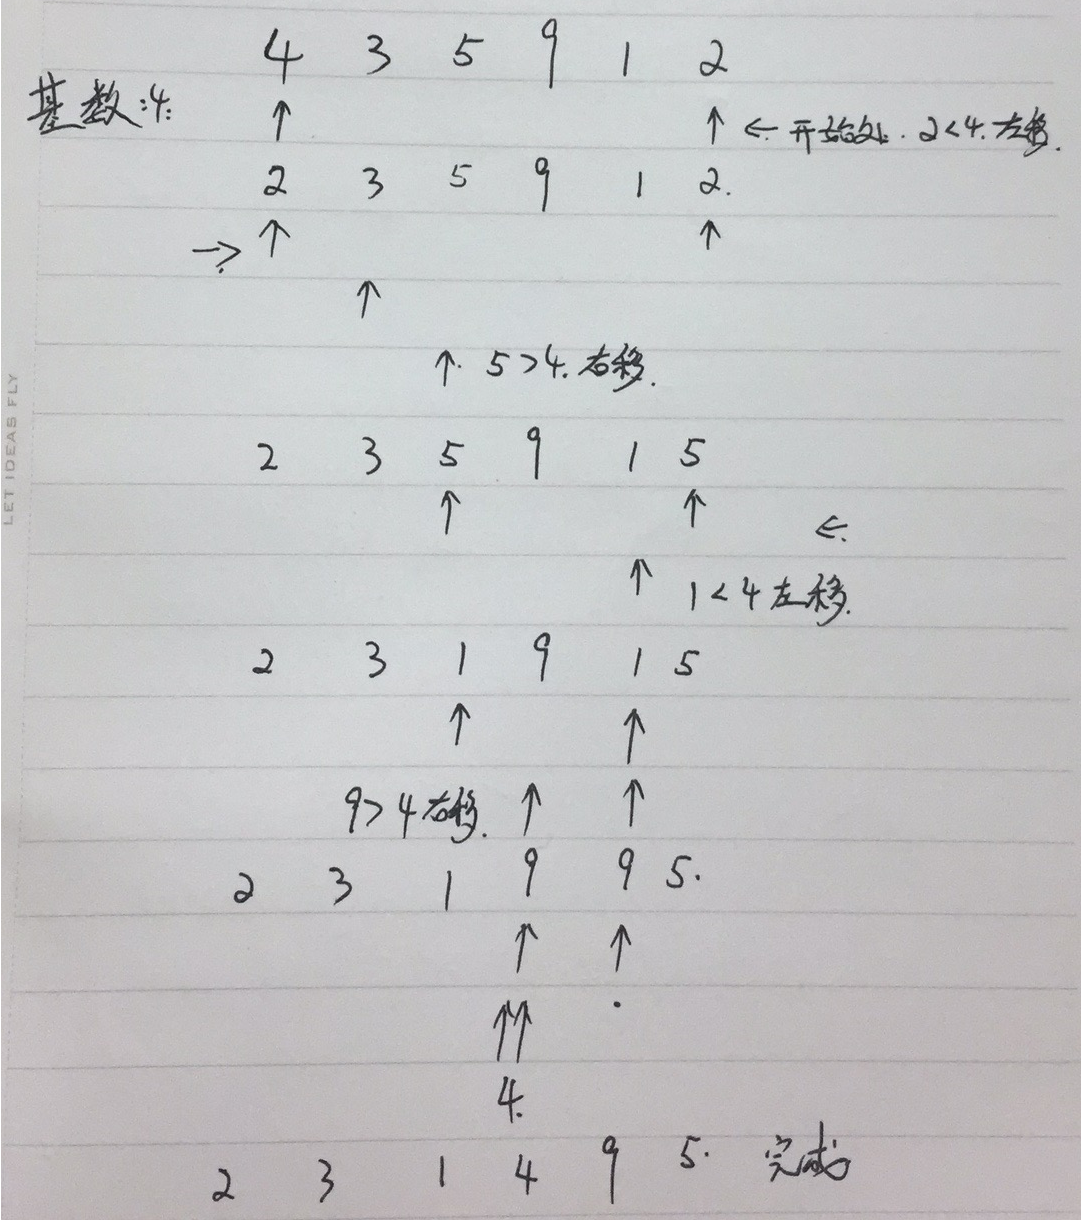 4 3 5 9 1 2
基数:4:
↑ ↑ ← 开始处. 2<4. 左移.
2 3 5 9 1 2.
→ ↑ ↑
↑
↑. 5>4. 右移.
2 3 5 9 1 5
↑ ↑ ←.
↑ 1<4 左移.
2 3 1 9 1 5
↑ ↑
9>4 右移. ↑ ↑
2 3 1 9 9 5.
↑ ↑
↑↑
4.
2 3 1 4 9 5. 完成
LET IDEAS FLY